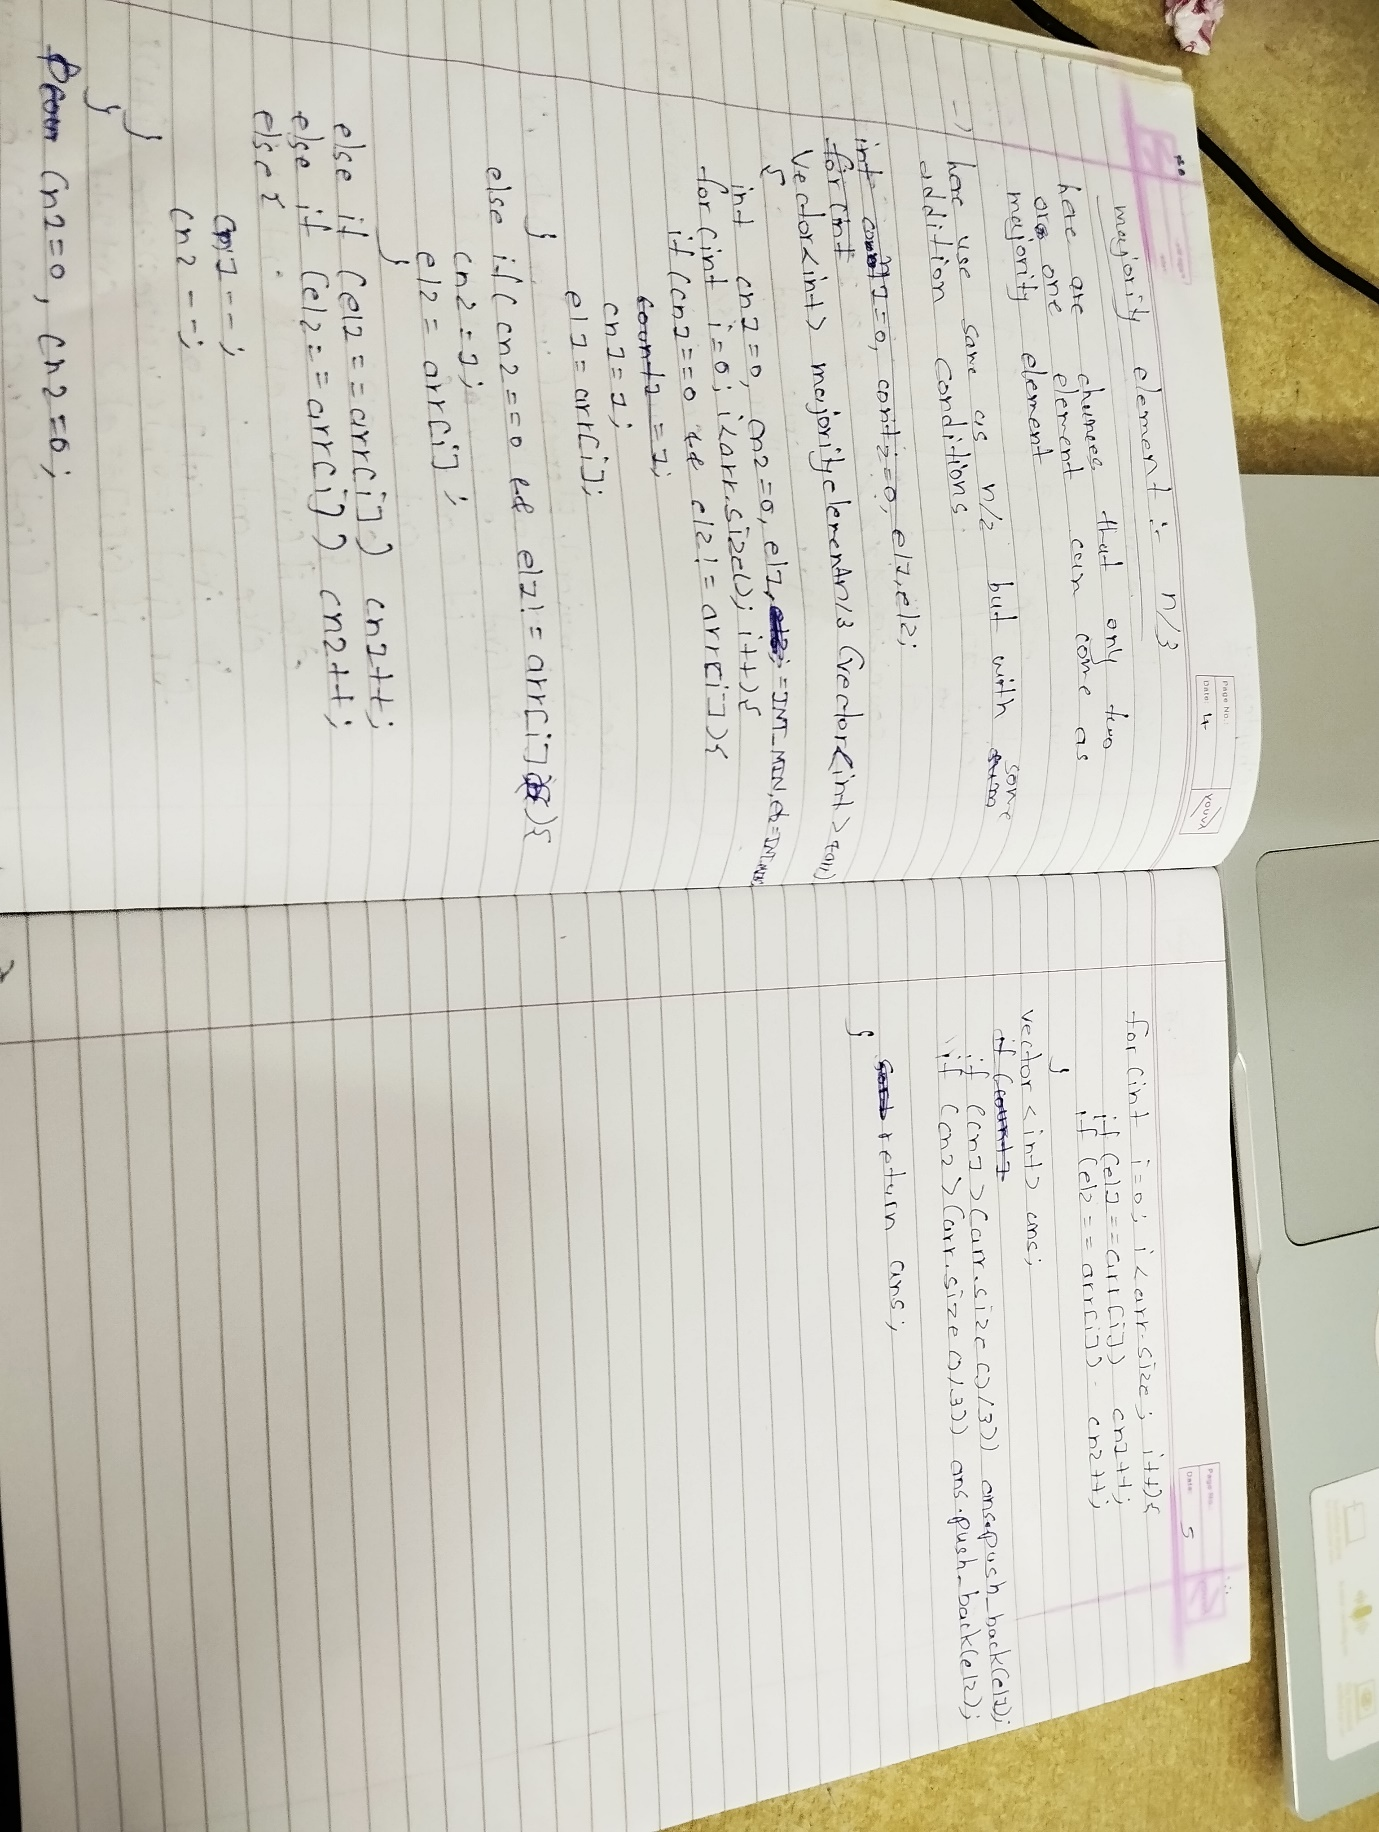 Page No.:
Date: 4
YOUVA
majority element :- n/3
here are chances that only two
or one element can come as
majority element
-> here use same as n/2 but with some
addition conditions.
int cont1=0, cont2=0, el1, el2;
for(int
vector<int> majorityelementn/3 (vector<int>
{
int cn1=0, cn2=0, el1 =INT_MIN, el2=INT_MIN;
for(int i=0; i<arr.size(); i++){
if (cn1==0 && el2!=arr[i]){
count1 =1;
cn1=1;
el1=arr[i];
}
else if( cn2==0 && el1!=arr[i]){
cn2=1;
el2= arr[i];
}
else if (el1==arr[i]) cn1++;
else if (el2==arr[i]) cn2++;
else {
cn1--;
cn2--;
}
}
cn1=0, cn2=0;
Page No.:
Date: 5
for(int i=0; i<arr.size; i++){
if (el1==arr[i]) cn1++;
if (el2==arr[i]) cn2++;
}
vector<int> ans;
if (count1
if (cn1>(arr.size()/3)) ans.push_back(el1);
if (cn2>(arr.size()/3)) ans.push_back(el2);
return ans;
}